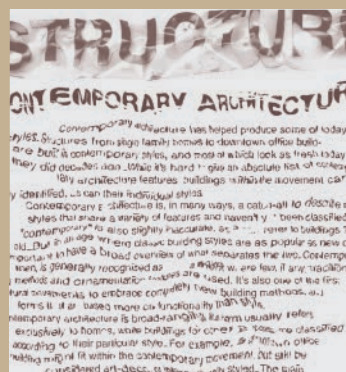 STRUCTUR
ONTEMPORARY ARCHITECTUR
Contemporary architecture has helped produce some of today
styles. Structures from single family homes to downtown office build-
are built in contemporary styles, and most of which look as fresh today
they did decades ago. While it's hard to give an absolute list of
architecture features buildings within the movement can
y identified, as can their individual styles.
Contemporary architecture is, in many ways, a catch-all to describe
styles that share a variety of features and haven't been classified
"contemporary" is also slightly inaccurate, as refer to buildings
old. But in an age where classic building styles are as popular as new
important to have a broad overview of what separates the two. Contemp
is generally recognised as where few, if any, tradition
methods and ornamentation are used. It's also one of the first
tural movements to embrace completely new building methods, and
forms it is based more on functionality than style.
ntemporary architecture is broad-ranging, its term usually refers
exclusively to homes, while buildings for other are classified
according to their particular style. For example, an office
building might fit within the contemporary movement, but still be
considered art-deco, styled. The main